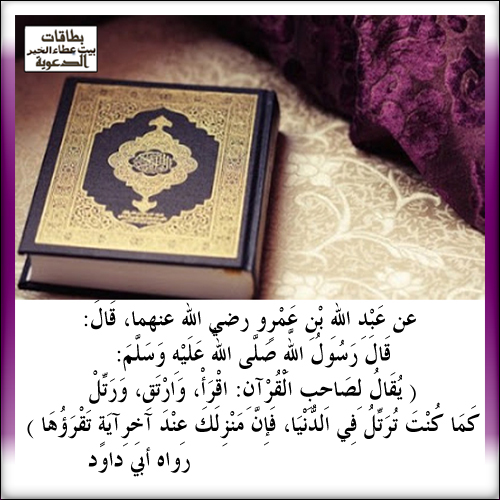 بطاقات
بيت عطاء الخير
الدعوية
القرآن الكريم
عن عَبْد الله بْن عَمْرٍو رضي الله عنهما، قَالَ:
قَالَ رَسُولُ اللَّهِ صَلَّى اللهُ عَلَيْهِ وَسَلَّمَ:
( يُقَالُ لصَاحبِ الْقُرْآن: اقْرَأْ، وَارْتَقِ، وَرَتِّلْ
كَمَا كُنْتَ تُرَتِّلُ فِي الدُّنْيَا، فَإِنَّ مَنْزِلَكَ عِنْدَ آخِرِ آيَةٍ تَقْرَؤُهَا )
رواه أبي داود